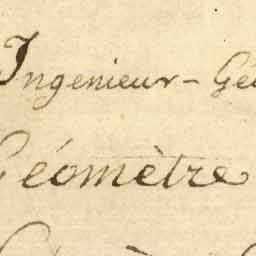 Ingenieur - Gé
Géomètre